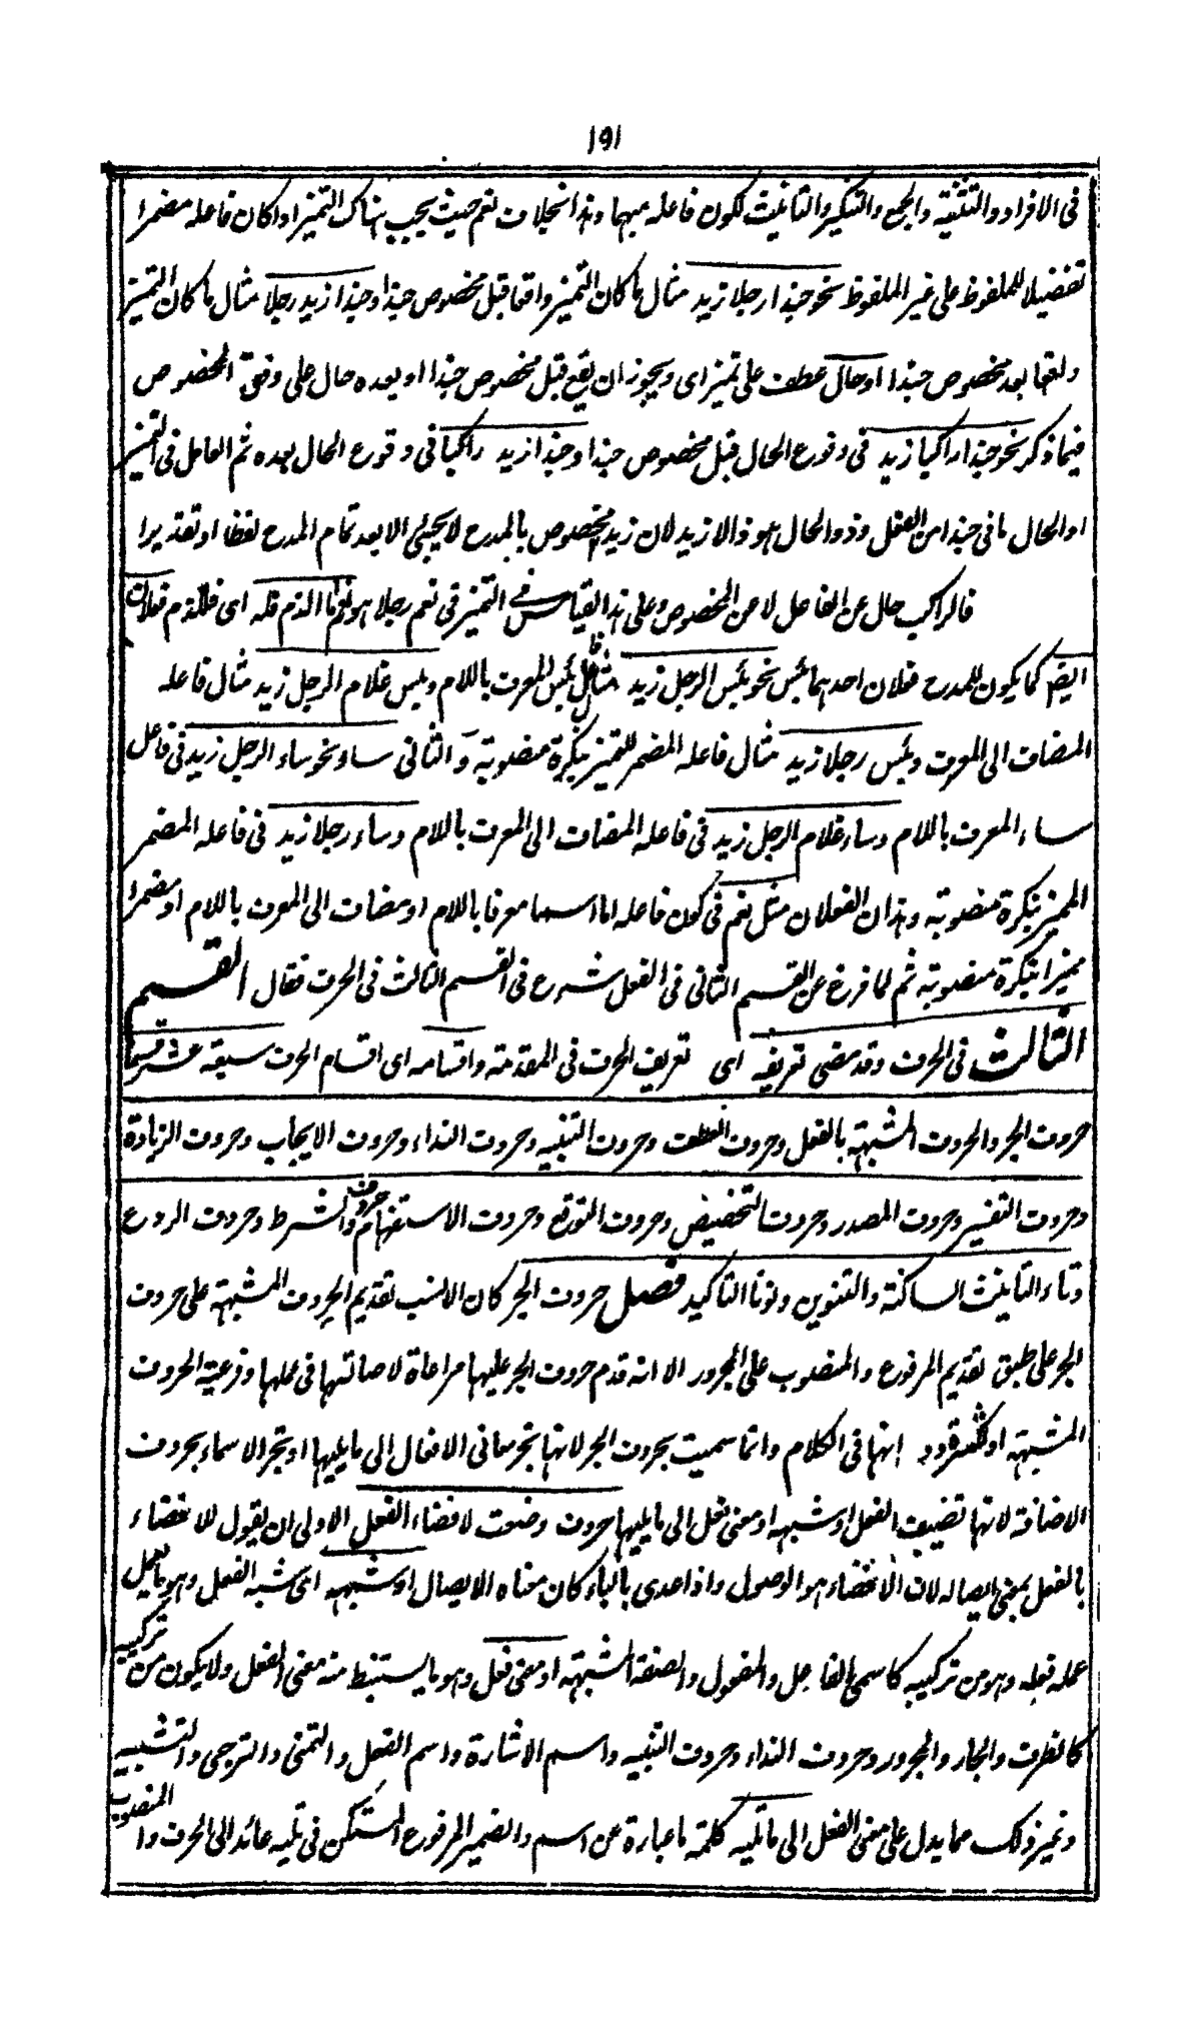 ١٩١
فى الافراد والتثنية والجمع والتذكير والتانيث لكون فاعله مبهما وهذا بخلاف نعم حيث يجب هناك التميز اذا كان فاعله مضمرا
تفضيلا للملفوظ على غير الملفوظ نحو حبذا رجلا زيد مثال ما كان التميز واقعا قبل مخصوص حبذا وحبذا زيد رجلا مثال ما كان التميز
واقعا بعد مخصوص حبذا او حال عطف على تميز اى ويجوز ان يقع قبل مخصوص حبذا او بعده حال على وفق المخصوص
فيما ذكر نحو حبذا راكبا زيد فى وقوع الحال قبل مخصوص حبذا وحبذا زيد راكبا فى وقوع الحال بعده ثم العامل فى التميز
او الحال ما فى حبذا من الفعل وذو الحال هو ذا لا زيد لان زيد مخصوص بالمدح لا يجيئ الا بعد تمام المدح لفظا او تقديرا
فالراكب حال عن الفاعل لا عن المخصوص وعلى هذا القياس فى التميز فى نعم رجلا هو واما الذم فله اى فللذم فعلان
ايضا كما يكون للمدح فعلان احدهما بئس نحو بئس الرجل زيد مثال فاعل بئس المعرف باللام وبئس غلام الرجل زيد مثال فاعله
المضاف الى المعرف وبئس رجلا زيد مثال فاعله المضمر المميز بنكرة منصوبة و الثانى ساء نحو ساء الرجل زيد فى فاعل
ساء المعرف باللام وساء غلام الرجل زيد فى فاعله المضاف الى المعرف باللام وساء رجلا زيد فى فاعله المضمر
المميز بنكرة منصوبة وهذان الفعلان مثل نعم فى كون فاعله اما اسما معرفا باللام او مضاف الى المعرف باللام او مضمرا
مميزا بنكرة منصوبة ثم لما فرغ عن القسم الثانى فى الفعل شرع فى القسم الثالث فى الحرف فقال القسم
الثالث فى الحرف وقد مضى تعريفه اى تعريف الحرف فى المقدمة واقسامه اى اقسام الحرف سبعة عشر قسما
حروف الجر والحروف المشبهة بالفعل وحروف العطف وحروف التنبيه وحروف النداء وحروف الايجاب وحروف الزيادة
وحروف التفسير وحروف المصدر وحروف التحضيض وحروف التوقع وحروف الاستفهام وحروف الشرط وحروف الردع
وتاء التانيث الساكنة والتنوين ونونا التاكيد فصل حروف الجر كان الانسب تقديم الحروف المشبهة على حروف
الجر على طبق تقديم المرفوع والمنصوب على المجرور الا انه قدم حروف الجر عليها مراعاة لاصالتها فى عملها وفرعية الحروف
المشبهة او لكثرة دورانها فى الكلام وانما سميت بحروف الجر لانها تجر معانى الافعال الى ما يليها او تجر الاسماء بحروف
الاضافة لانها تضيف الفعل او شبهه او معنى فعل الى ما يليها حروف وضعت لافضاء الفعل الاولى ان يقول للافضاء
بالفعل بمعنى ايصاله لان الافضاء هو الوصول واذا عدى بالباء كان معناه الايصال او شبهه اى شبه الفعل وهو ما يعمل
عمله فعله وهو من تركيبه كاسمى الفاعل والمفعول والصفة المشبهة او معنى فعل وهو ما يستنبط منه معنى الفعل ولا يكون من تركيبه
كالظرف والجار والمجرور وحروف النداء وحروف التنبيه واسم الاشارة واسم الفعل والتمنى والترجى والتشبيه
وغير ذلك مما يدل على معنى الفعل الى ما تليه كلمة ما عبارة عن اسم والضمير المرفوع المستكن فى تليه عائد الى الحرف والمنصوب